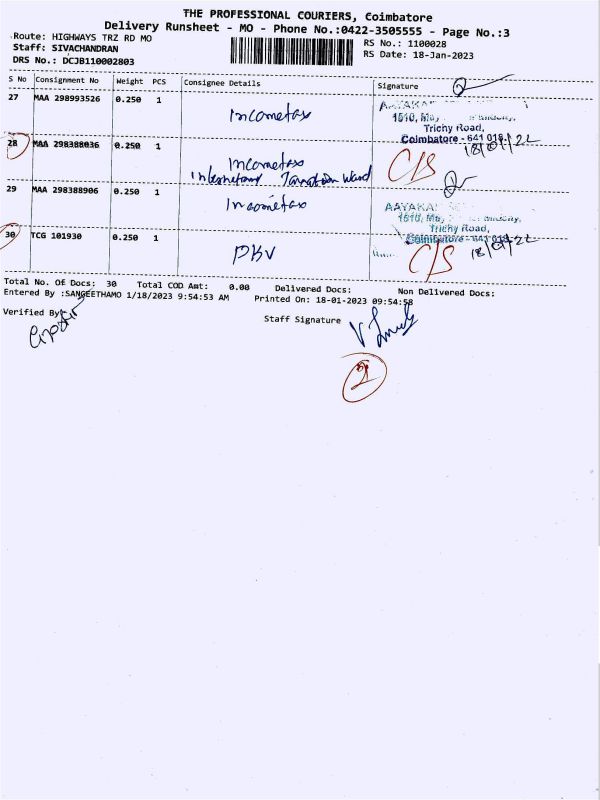 THE PROFESSIONAL COURIERS, Coimbatore
Delivery Runsheet - MO - Phone No.:0422-3505555 - Page No.:3
Route: HIGHWAYS TRZ RD MO
RS No.: 1100028
Staff: SIVACHANDRAN
RS Date: 18-Jan-2023
DRS No.: DCJB110002803
S No Consignment No Weight PCS Consignee Details Signature
27 MAA 298993526 0.250 1 Incometax
Trichy Road,
Coimbatore - 641 018.
28 MAA 298388036 0.250 1 Incometax
C/S
29 MAA 298388906 0.250 1 Incometax
Trichy Road,
Coimbatore - 641 018.
30 TCG 101930 0.250 1 PKV
C/S
Total No. Of Docs: 30 Total COD Amt: 0.00 Delivered Docs: Non Delivered Docs:
Entered By :SANGEETHAMO 1/18/2023 9:54:53 AM Printed On: 18-01-2023 09:54:58
Verified By:
Staff Signature
2